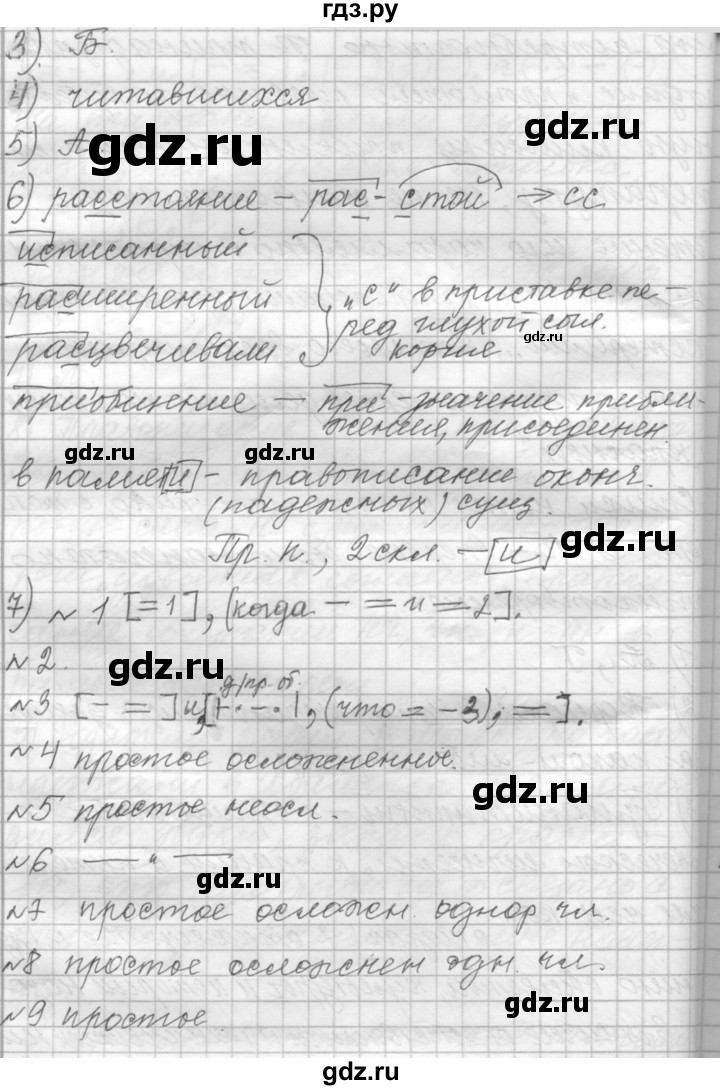 гдз.ру
3). Б.
4) читавшихся
5) А
6) расстояние – рас-стой => сс
исписанный
расширенный
расцвечивали
„с“ в приставке пе-
ред глухой согл.
корня
приобщение – при-значение прибли-
жения, присоединен.
в памяти – правописание оконч.
(падежных) сущ.
Пр. п., 2 скл. – и
7) № 1 [=1], (когда – = и = 2].
№ 2.
д/пр. об.
№3 [– =] и, [ , (что = – 3), =].
№4 простое осложненное.
№5 простое неосл.
№6 —— " ——
№7 простое осложн. однор чл.
№8 простое осложнен одн. чл.
№9 простое
gdz.ru
gdz.ru
gdz.ru
gdz.ru
gdz.ru
gdz.ru
gdz.ru
gdz.ru
gdz.ru
gdz.ru
gdz.ru
gdz.ru